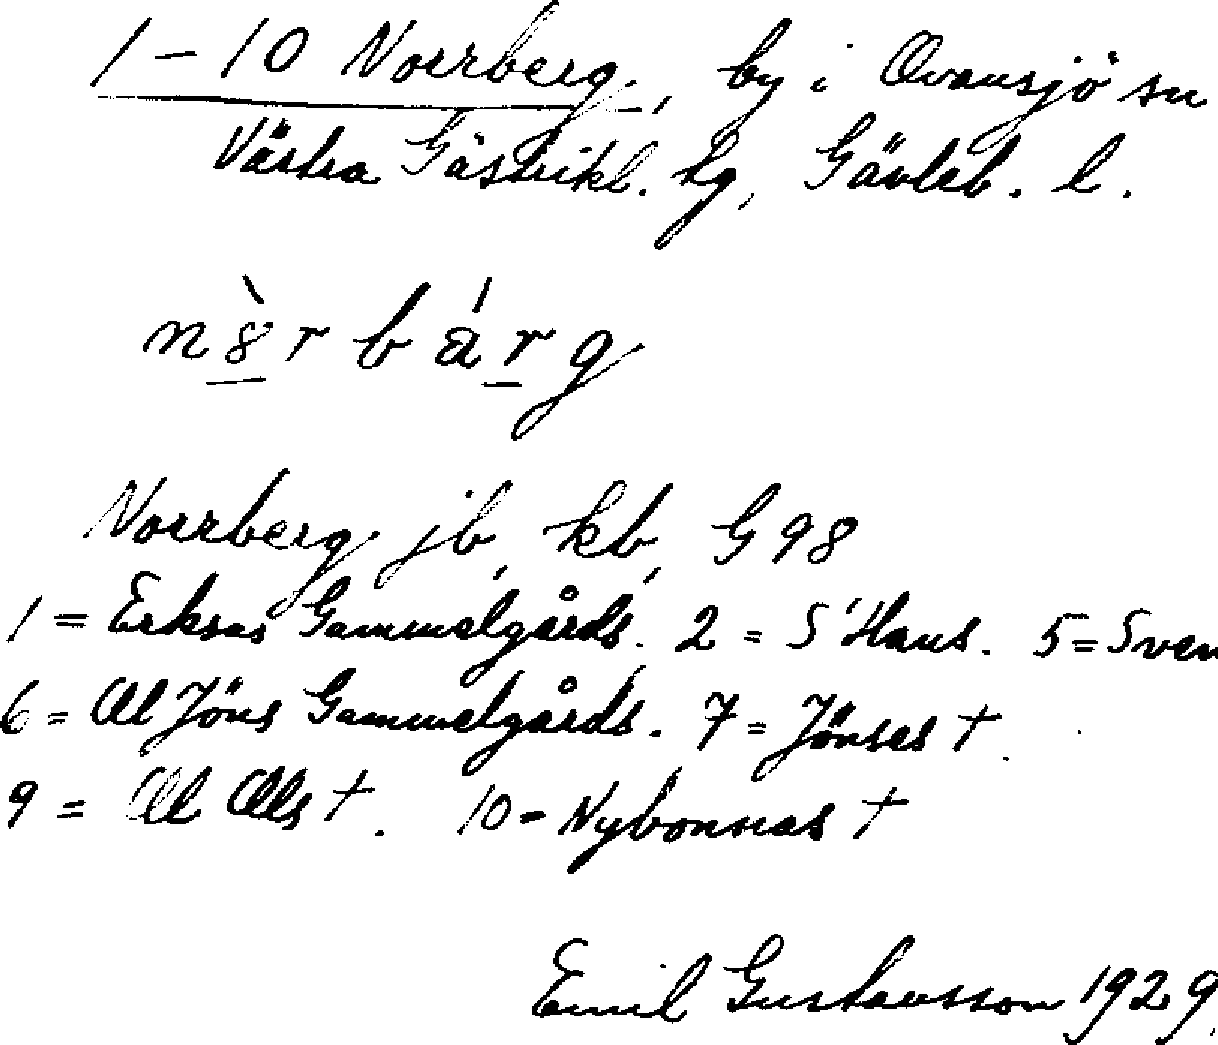 1–10 Norrberg, by i Ovansjö sn
Västra Gästrikl. hg, Gävleb. l.
n8̀rbárg
Norrberg jb, kb, G 98
1 = Erksas Gammelgårds. 2 = S'Hans. 5 = Sven
6 = Ol Jöns Gammelgårds. 7 = Jönses †.
9 = Ol Ols †. 10 = Nybonnas †
Emil Gustavsson 1929.